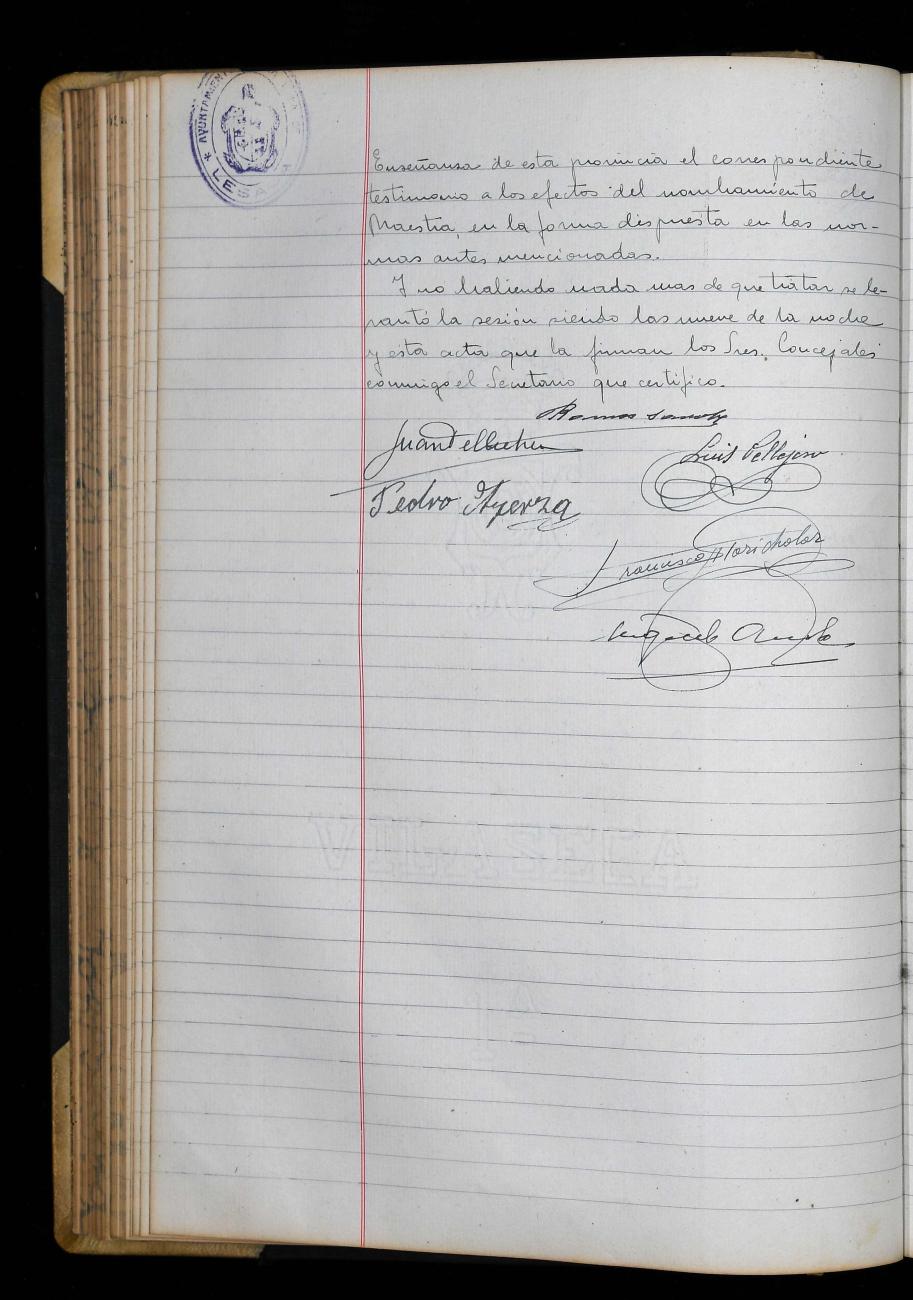 AYUNTAMIENTO
LESA
Enseñansa de esta provincia el correspondiente
testimonio a los efectos del nombramiento de
Maestra, en la forma dispuesta en las nor-
mas antes mencionadas.
Y no habiendo nada mas de que tratar se le-
vantó la sesión siendo las nueve de la noche
y esta acta que la firman los Sres. Concejales
conmigo el Secretario que certifico.
Ramos
Juan
Luis Pellejero
Pedro Ayerza
Francisco Marichalar
Miguel